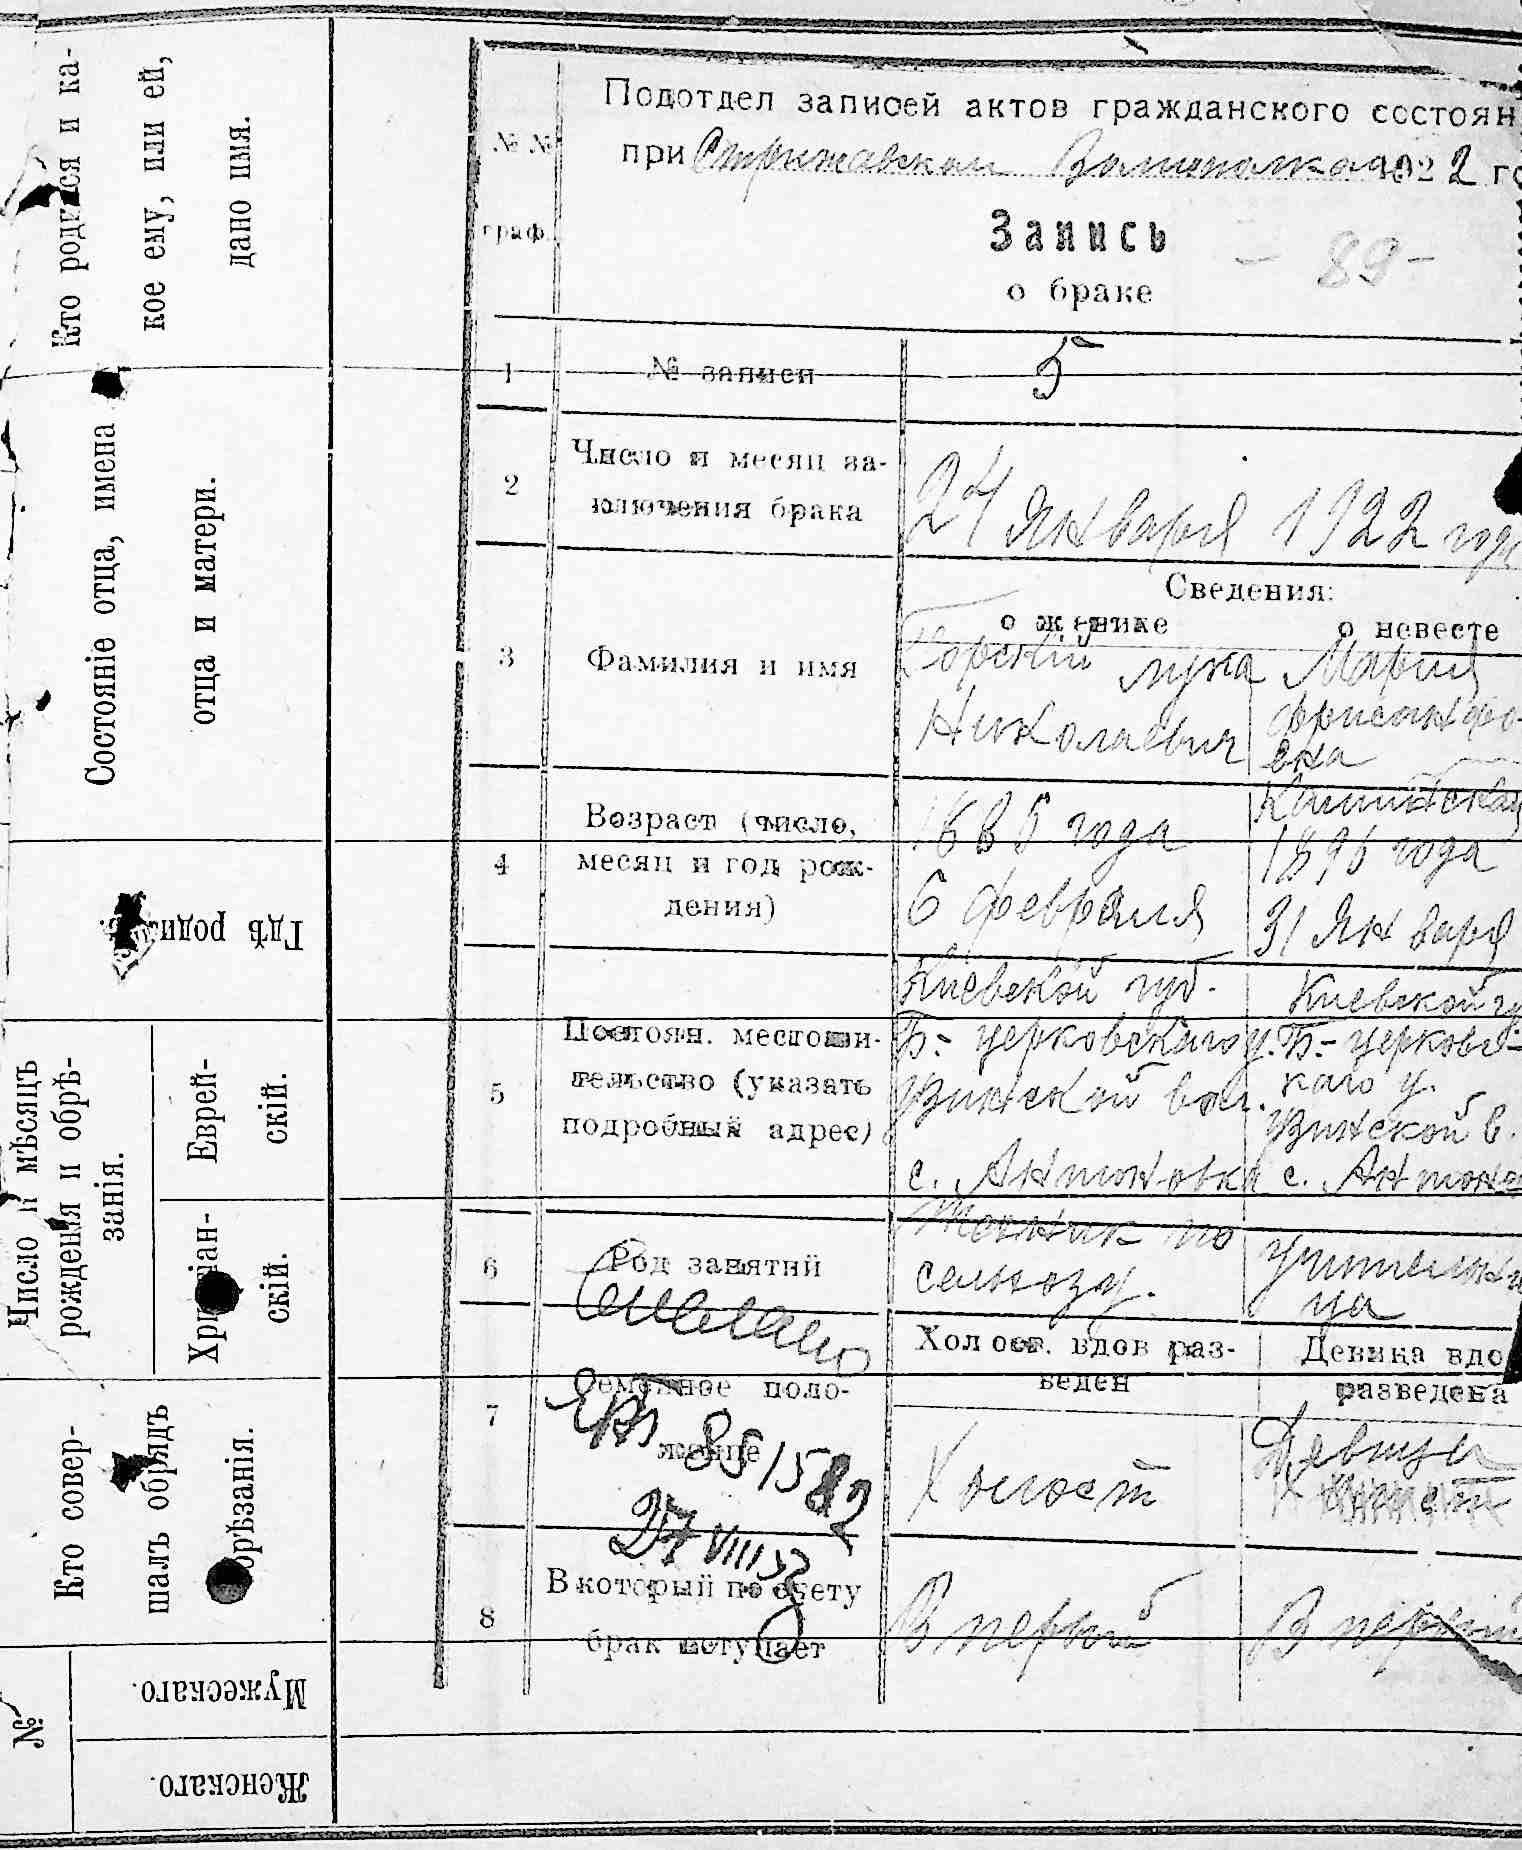 Кто родился и ка-
кое ему, или ей,
дано имя.
Состояніе отца, имена
отца и матери.
Гдѣ роди
Число и мѣсяцъ
рожденія и обрѣ-
занія.
Еврей-
скій.
Христіан-
скій.
Кто совер-
шалъ обрядъ
обрѣзанія.
№
Мужескаго.
Женскаго.
Подотдел записей актов гражданского состоян
при Стрижавском 1922 го
№№
граф.
Запись
о браке
- 89 -
1 № записи 5
2 Число и месяц за-
ключения брака
24 Января 1922 года
Сведения:
о женихе о невесте
3 Фамилия и имя
Горский Лука
Николаевич
Мария
вна
4 Возраст (число,
месяц и год рож-
дения)
1885 года
6 февраля
1896 года
31 Января
5 Постоян. местожи-
тельство (указать
подробный адрес)
Киевской губ.
Б.-церковскаго у.
Узинской вол.
с. Антоновка
Киевской гу
Б.-церковс-
каго у.
Узинской в.
с. Антонов
6 Род занятий
Техник по
сельхозу.
учительни
ца
7 Семейное поло-
жение
Холост. вдов раз-
веден
Девица вдо
разведена
Холост
Девица
Холост
851582
27 VIII
8 В который по счету
брак вступает
В первый
В первый